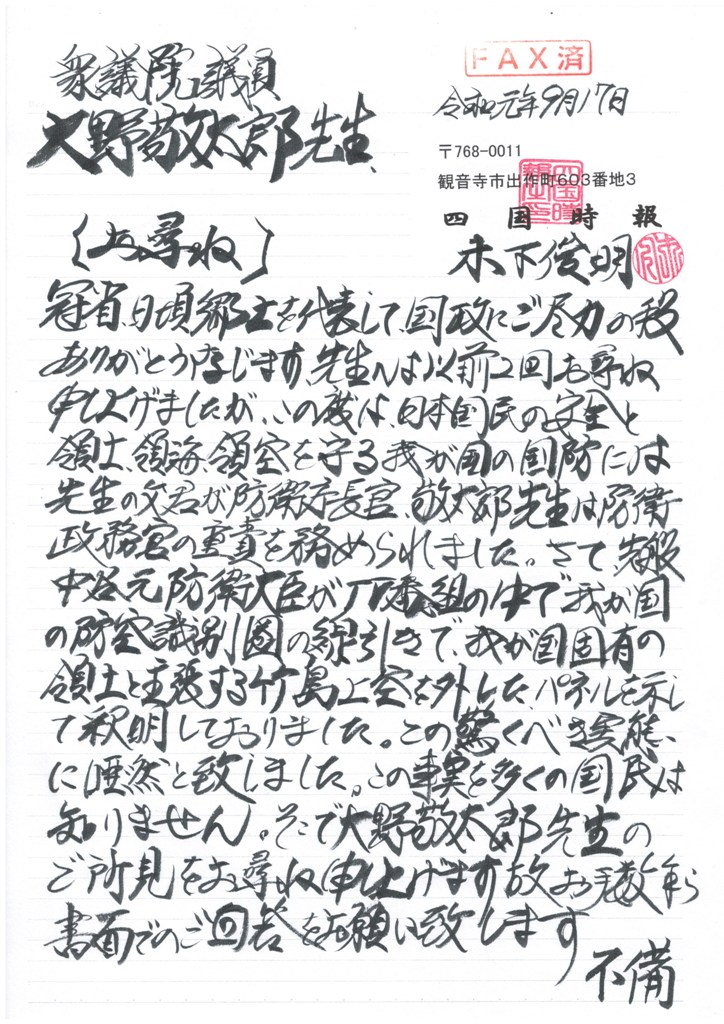 衆議院議員
大野敬太郎先生、
FAX済
令和元年9月17日
〒768-0011
観音寺市出作町603番地3
四国時報
木下俊明
〔お尋ね〕
冠省、日頃郷土を代表して、国政にご尽力の段
ありがとう存じます、先生へは以前2回お尋ね
申し上げましたが、この度は、日本国民の安全と
領土、領海、領空を守る我が国の国防には
先生の父君が防衛庁長官、敬太郎先生は防衛
政務官の重責を務められました。さて、先般
中谷元防衛大臣がTV番組の中で我が国
の防空識別圏の線引きで、我が国固有の
領土と主張する竹島上空を外したパネルを示し
て釈明しておりました。この驚くべき実態、
に唖然と致しました。この事実を多くの国民は
知りません。そこで大野敬太郎先生の
ご所見をお尋ね申し上げます故お手数乍ら
書面でのご回答をお願い致します
不備